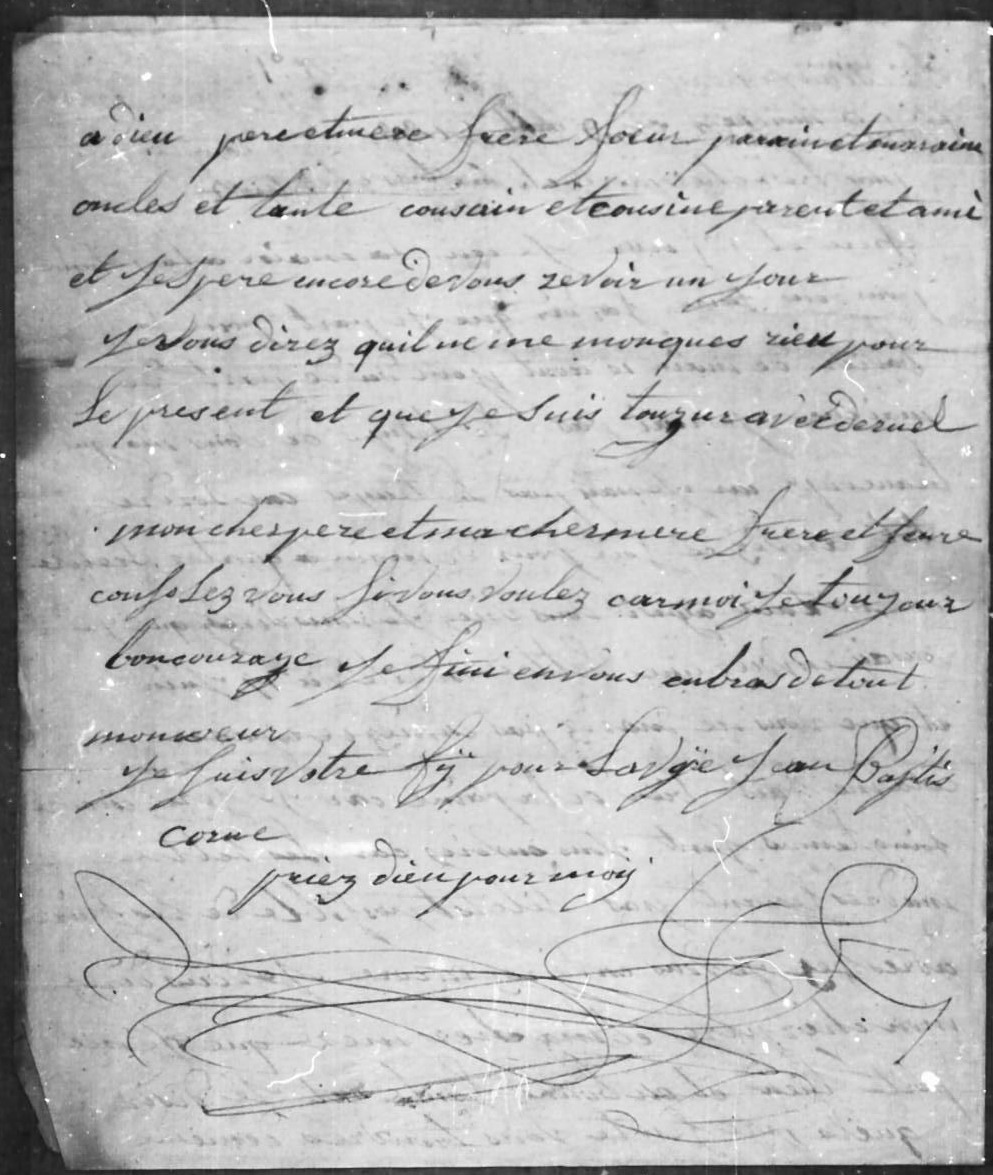 adieu pere et mere frere soeur parain et maraine
oncles et tante cousain et cousine parent et ami
et jespere encore de vous revoir un jour
je vous direz quil ne me monques rien pour
Le present et que je suis touzur avec deruel
mon cher pere et ma cher mere frere et seure
consolez vous si vous voulez car moi je toujour
bon courage je fini en vous enbras de tout
mon coeur
je suis votre fÿ pour La vÿe jean Baptis
corne
priez dieu pour moÿ